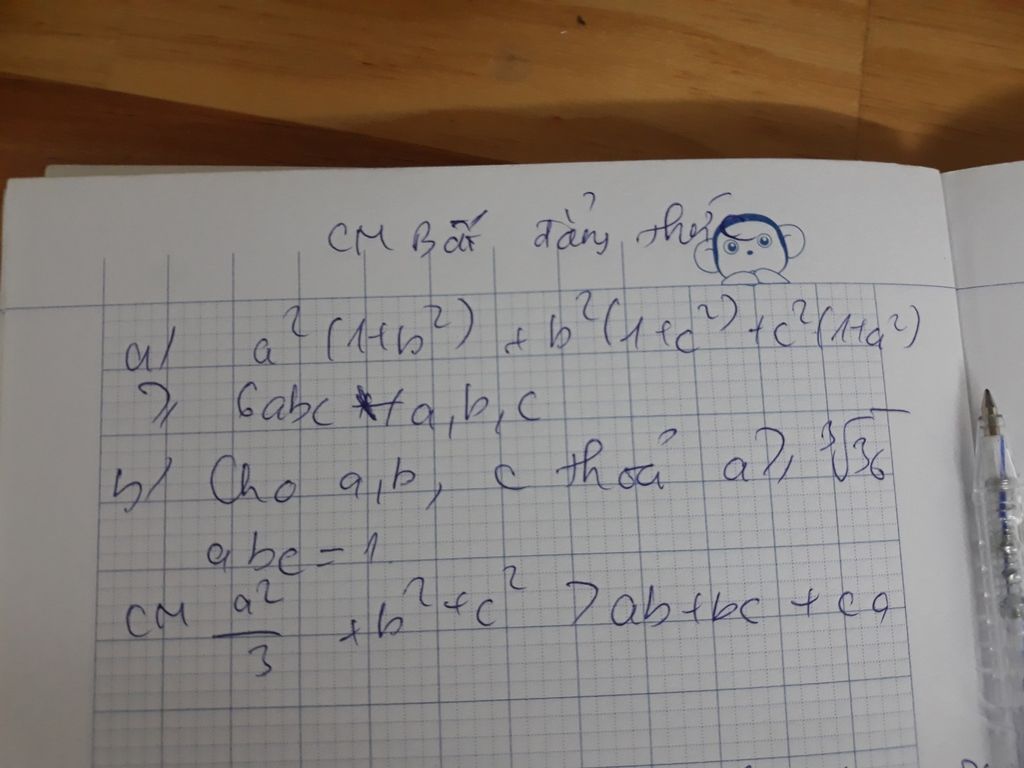 CM Bất đẳng thức
a) a²(1+b²) + b²(1+c²) + c²(1+a²)
≥ 6abc ∀ a,b,c
b) Cho a,b, c thoả a ≥ ∛36
abc = 1
CM a²/3 + b² + c² > ab+bc + ca